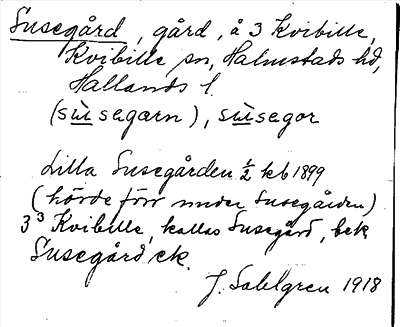 Susegård, gård, å 3 Kvibille,
Kvibille sn, Halmstads hd,
Hallands l.
(sùsegarn), sùsegor
Lilla Susegården ½ kb 1899
(hörde förr under Susegården)
3³ Kvibille, kallas Susegård, bek
Susegård ek.
J. Sahlgren 1918